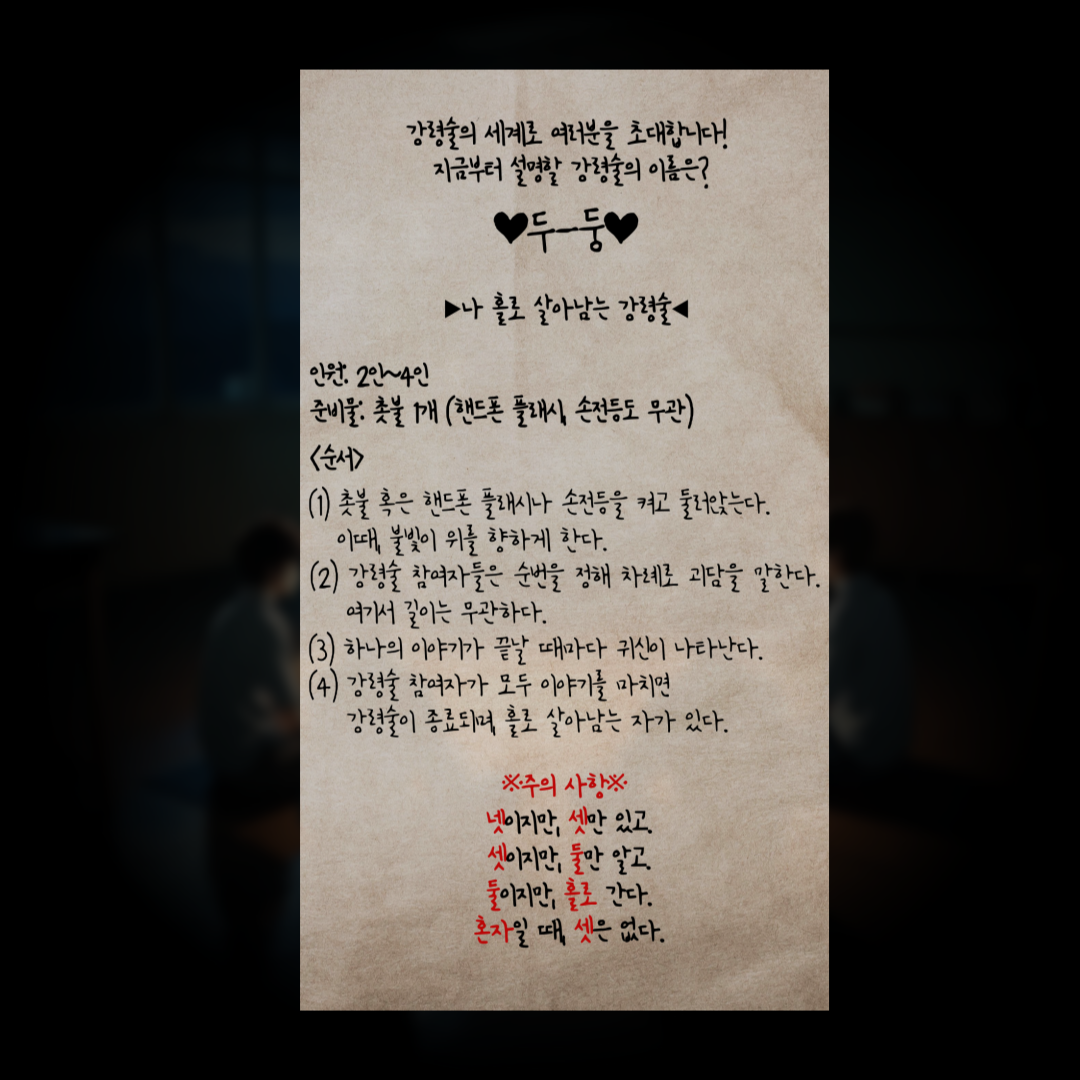 강령술의 세계로 여러분을 초대합니다!
지금부터 설명할 강령술의 이름은?
♥두—둥♥
▶나 홀로 살아남는 강령술◀
인원: 2인~4인
준비물: 촛불 1개 (핸드폰 플래시, 손전등도 무관)
<순서>
(1) 촛불 혹은 핸드폰 플래시나 손전등을 켜고 둘러앉는다.
이때, 불빛이 위를 향하게 한다.
(2) 강령술 참여자들은 순번을 정해 차례로 괴담을 말한다.
여기서 길이는 무관하다.
(3) 하나의 이야기가 끝날 때마다 귀신이 나타난다.
(4) 강령술 참여자가 모두 이야기를 마치면
강령술이 종료되며, 홀로 살아남는 자가 있다.
※주의 사항※
넷이지만, 셋만 있고.
셋이지만, 둘만 알고.
둘이지만, 홀로 간다.
혼자일 때, 셋은 없다.